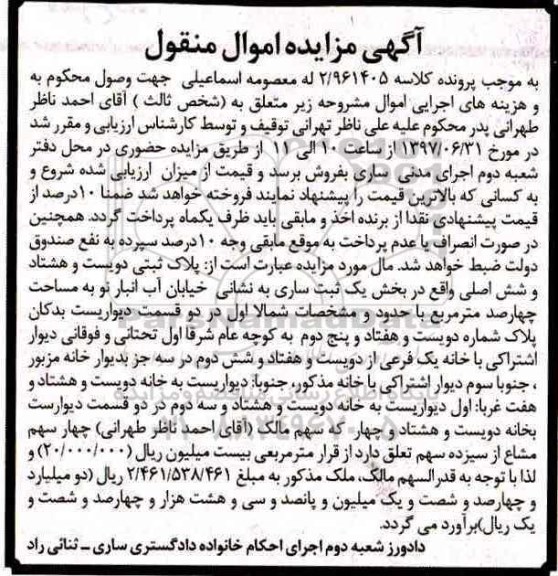 آگهی مزایده اموال منقول
به موجب پرونده کلاسه ۲/۹۶۱۴۰۵ له معصومه اسماعیلی جهت وصول محکوم به
و هزینه های اجرایی اموال مشروحه زیر متعلق به (شخص ثالث ) آقای احمد ناظر
طهرانی پدر محکوم علیه علی ناظر تهرانی توقیف و توسط کارشناس ارزیابی و مقرر شد
در مورخ ۱۳۹۷/۰۶/۳۱ از ساعت ۱۰ الی ۱۱ از طریق مزایده حضوری در محل دفتر
شعبه دوم اجرای مدنی ساری بفروش برسد و قیمت از میزان ارزیابی شده شروع و
به کسانی که بالاترین قیمت را پیشنهاد نمایند فروخته خواهد شد ضمنا ۱۰درصد از
قیمت پیشنهادی نقدا از برنده اخذ و مابقی باید ظرف یکماه پرداخت گردد. همچنین
در صورت انصراف یا عدم پرداخت به موقع مابقی وجه ۱۰درصد سپرده به نفع صندوق
دولت ضبط خواهد شد. مال مورد مزایده عبارت است از: پلاک ثبتی دویست و هشتاد
و شش اصلی واقع در بخش یک ثبت ساری به نشانی خیابان آب انبار نو به مساحت
چهارصد مترمربع با حدود و مشخصات شمالا اول در دو قسمت دیواریست بدکان
پلاک شماره دویست و هفتاد و پنج دوم به کوچه عام شرقا اول تحتانی و فوقانی دیوار
اشتراکی با خانه یک فرعی از دویست و هفتاد و شش دوم در سه جز بدیوار خانه مزبور
، جنوبا سوم دیوار اشتراکی با خانه مذکور، جنوبا: دیواریست به خانه دویست و هشتاد و
هفت غربا: اول دیواریست به خانه دویست و هشتاد و سه دوم در دو قسمت دیوارست
بخانه دویست و هشتاد و چهار که سهم مالک (آقای احمد ناظر طهرانی) چهار سهم
مشاع از سیزده سهم تعلق دارد از قرار مترمربعی بیست میلیون ریال (۲۰/۰۰۰/۰۰۰) و
لذا با توجه به قدرالسهم مالک، ملک مذکور به مبلغ ۲/۴۶۱/۵۳۸/۴۶۱ ریال (دو میلیارد
و چهارصد و شصت و یک میلیون و پانصد و سی و هشت هزار و چهارصد و شصت و
یک ریال)برآورد می گردد.
دادورز شعبه دوم اجرای احکام خانواده دادگستری ساری ـ ثنائی راد